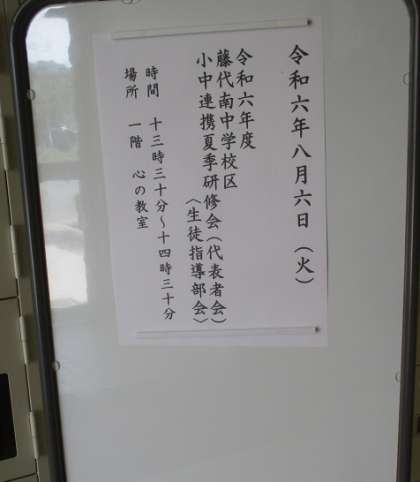 令和六年八月六日（火）
令和六年度
藤代南中学校区
小中連携夏季研修会（代表者会）
〈生徒指導部会〉
時間　十三時三十分～十四時三十分
場所　一階　心の教室